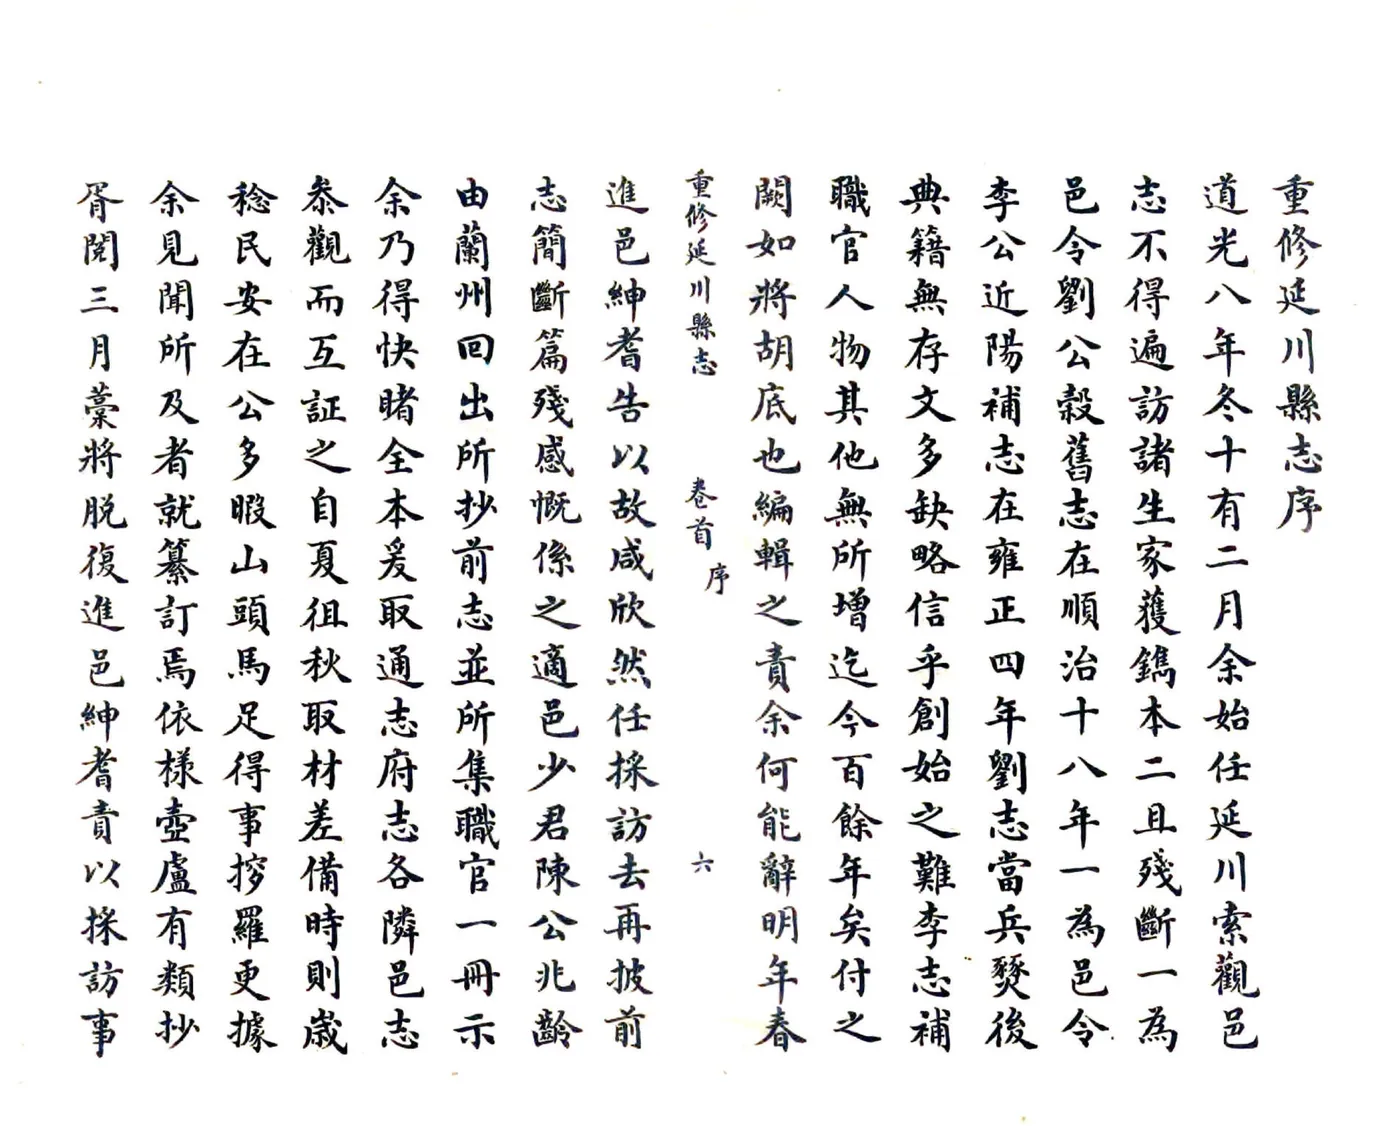 重修延川縣志序
道光八年冬十有二月余始任延川索觀邑
志不得遍訪諸生家獲鐫本二且殘斷一為
邑令劉公穀舊志在順治十八年一為邑令
李公近陽補志在雍正四年劉志當兵燹後
典籍無存文多缺略信乎創始之難李志補
職官人物其他無所增迄今百餘年矣付之
闕如將胡底也編輯之責余何能辭明年春
重修延川縣志 卷首 序 六
進邑紳耆告以故咸欣然任採訪去再披前
志簡斷篇殘感慨係之適邑少君陳公兆齡
由蘭州回出所抄前志並所集職官一冊示
余乃得快睹全本爰取通志府志各隣邑志
叅觀而互証之自夏徂秋取材差備時則歲
稔民安在公多暇山頭馬足得事搜羅更據
余見聞所及者就纂訂焉依樣壺盧有類抄
胥閱三月藁將脱復進邑紳耆責以採訪事